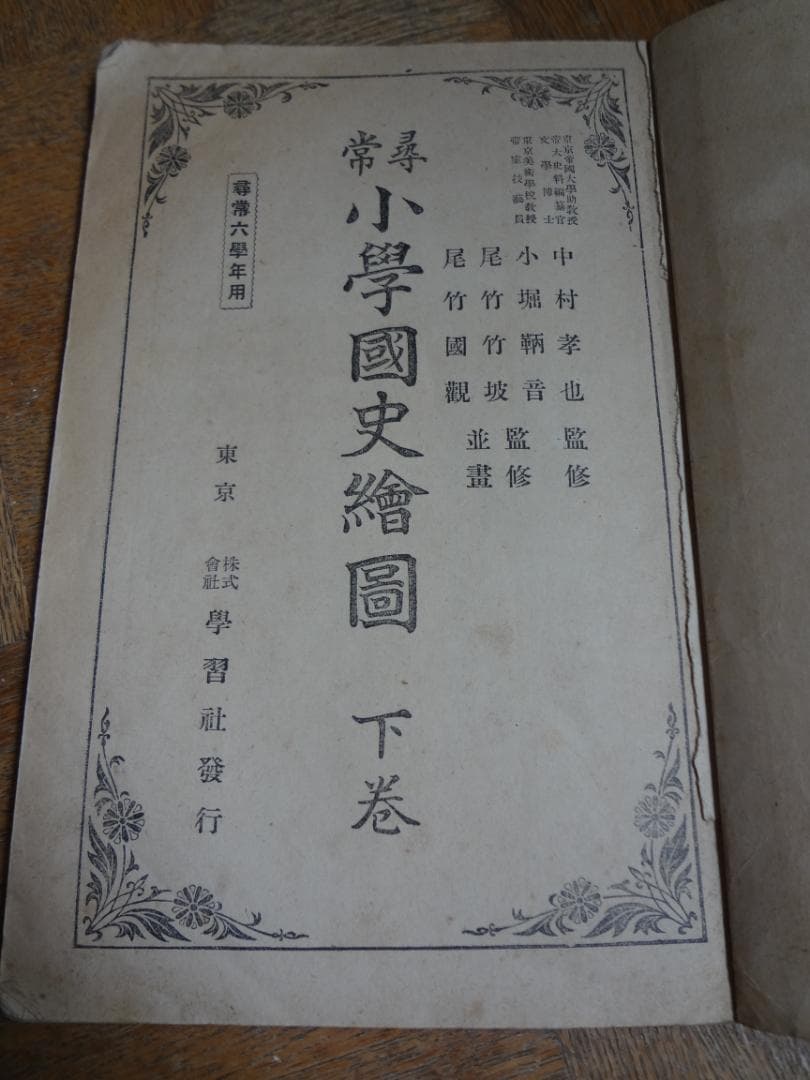 東京帝國大學助教授
帝大史料編纂官
文學博士
中村孝也 監修
東京美術學校教授
帝室技藝員
小堀鞆音 監修
尾竹竹坡
尾竹國觀 並畫
尋常
小學國史繪圖 下卷
尋常六學年用
東京 株式會社 學習社發行